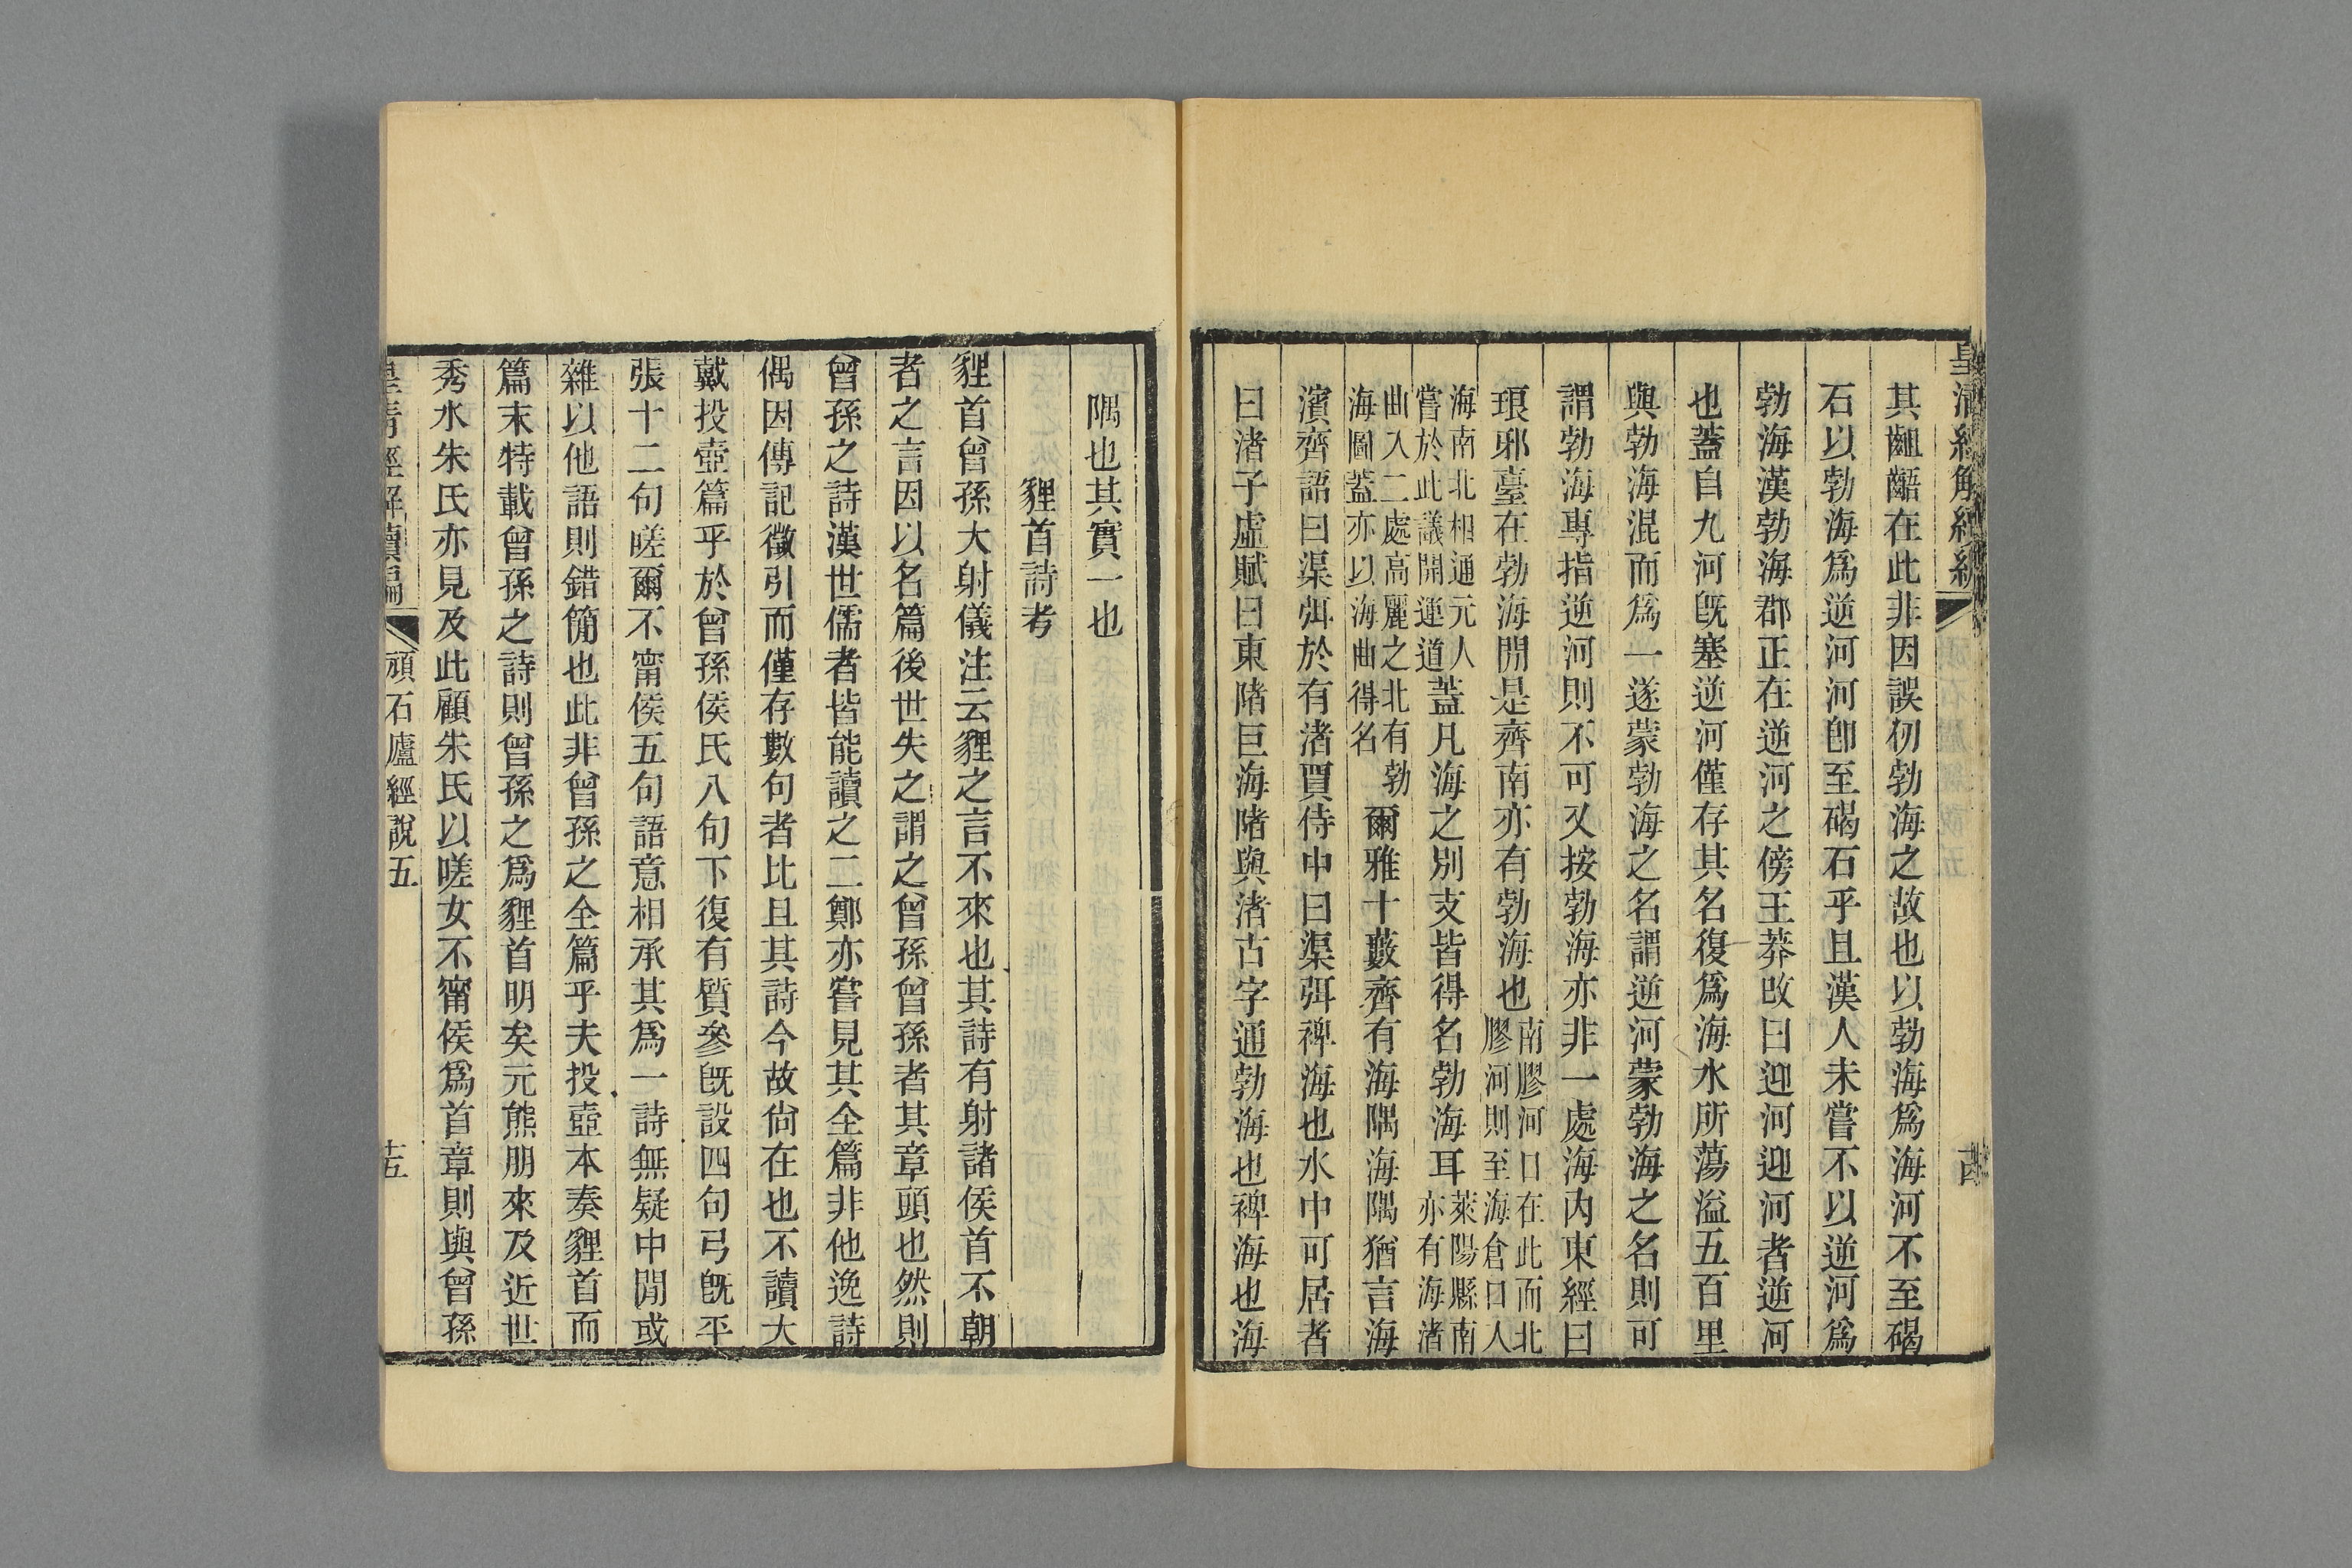 其齟齬在此非因誤仞勃海之故也以勃海爲海河不至碣
石以勃海爲逆河河卽至碣石乎且漢人未嘗不以逆河爲
勃海漢勃海郡正在逆河之傍王莽改曰迎河迎河者逆河
也蓋自九河旣塞逆河僅存其名復爲海水所蕩溢五百里
與勃海混而爲一遂蒙勃海之名謂逆河蒙勃海之名則可
謂勃海專指逆河則不可又按勃海亦非一處海內東經曰
琅邪臺在勃海閒是齊南亦有勃海也南膠河口在此而北
膠河則至海倉口人
海南北相通元人
嘗於此議開運道蓋凡海之別支皆得名勃海耳萊陽縣南
亦有海渚
曲入二處高麗之北有勃
海圖蓋亦以海曲得名爾雅十藪齊有海隅海隅猶言海
濱齊語曰渠弭於有渚賈侍中曰渠弭裨海也水中可居者
曰渚子虛賦曰東陼巨海陼與渚古字通勃海也裨海也海
隅也其實一也
貍首詩考
貍首曾孫大射儀注云貍之言不來也其詩有射諸侯首不朝
者之言因以名篇後世失之謂之曾孫曾孫者其章頭也然則
曾孫之詩漢世儒者皆能讀之二鄭亦嘗見其全篇非他逸詩
偶因傳記徵引而僅存數句者比且其詩今故尙在也不讀大
戴投壺篇乎於曾孫侯氏八句下復有質參旣設四句弓旣平
張十二句嗟爾不甯侯五句語意相承其爲一詩無疑中閒或
雜以他語則錯簡也此非曾孫之全篇乎夫投壺本奏貍首而
篇末特載曾孫之詩則曾孫之爲貍首明矣元熊朋來及近世
秀水朱氏亦見及此顧朱氏以嗟女不甯侯爲首章則與曾孫
皇清經解續編
頑石廬經說五
十五